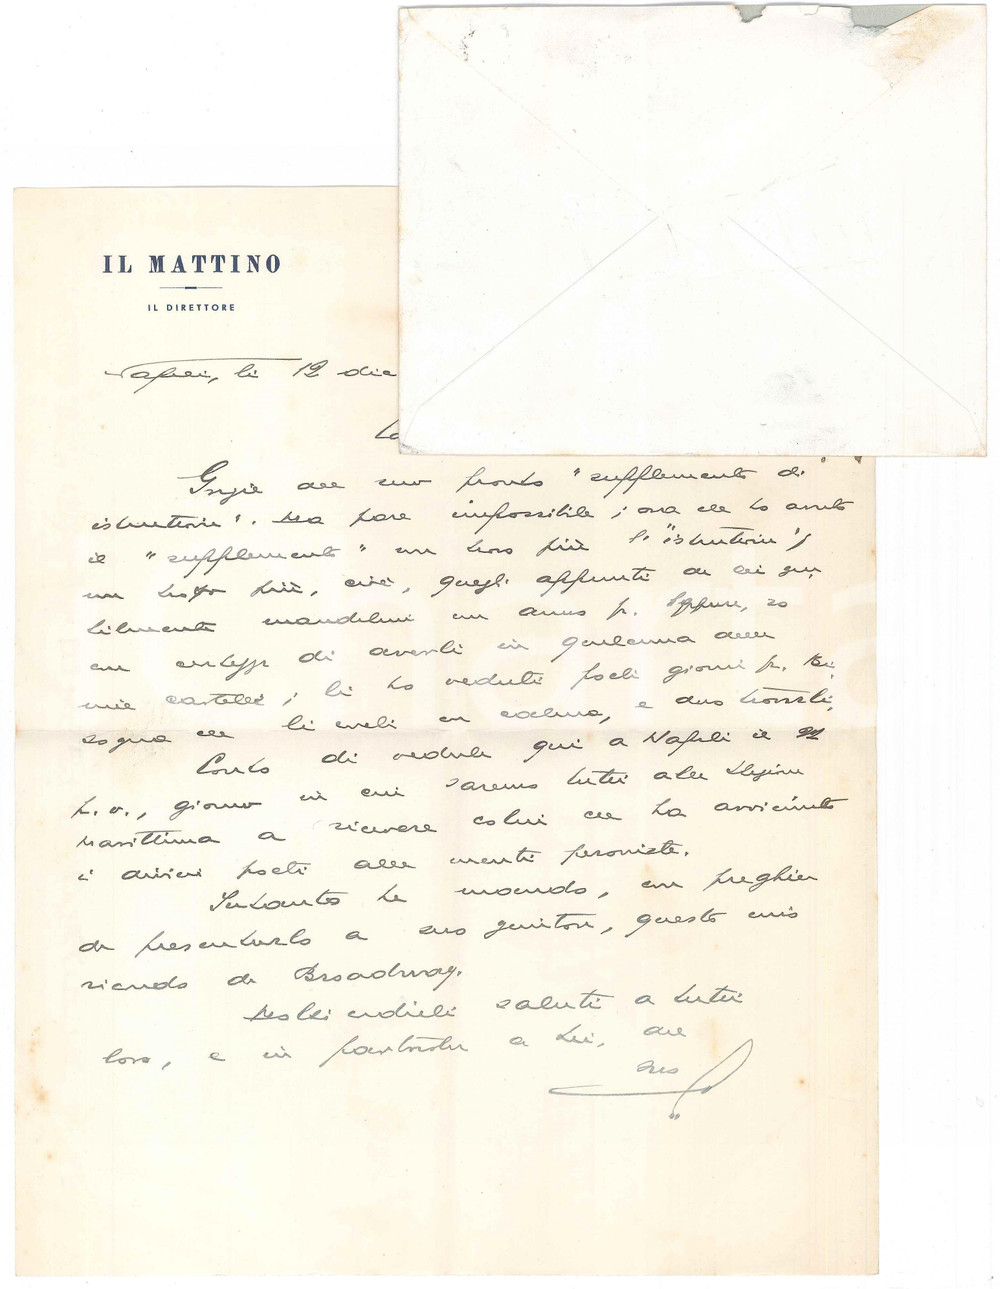 IL MATTINO
IL DIRETTORE
Napoli, li 12 dic
Grazie del suo pronto "supplemento di
istruttoria". Ma pare impossibile; ora che ho avuto
il "supplemento" non trovo più l'"istruttoria";
non trovo più, cioè, quegli appunti che lei gen
tilmente mandò un anno fa. Eppure, so
con certezza di averli in qualcuna delle
mie cartelle; li ho veduti pochi giorni fa. Bi
sogna che li cerchi con calma, e devo trovarli.
Conto di vederla qui a Napoli il
p. v., giorno in cui saremo tutti alla Stazione
Marittima a ricevere colui che ha avvicinato
i divini poeti alle menti
Intanto Le mando, con preghiera
di presentarlo a suo genitore, questo mio
ricordo di Broadway.
Molti cordiali saluti a tutti
loro, e in particolare a Lei, dal
suo